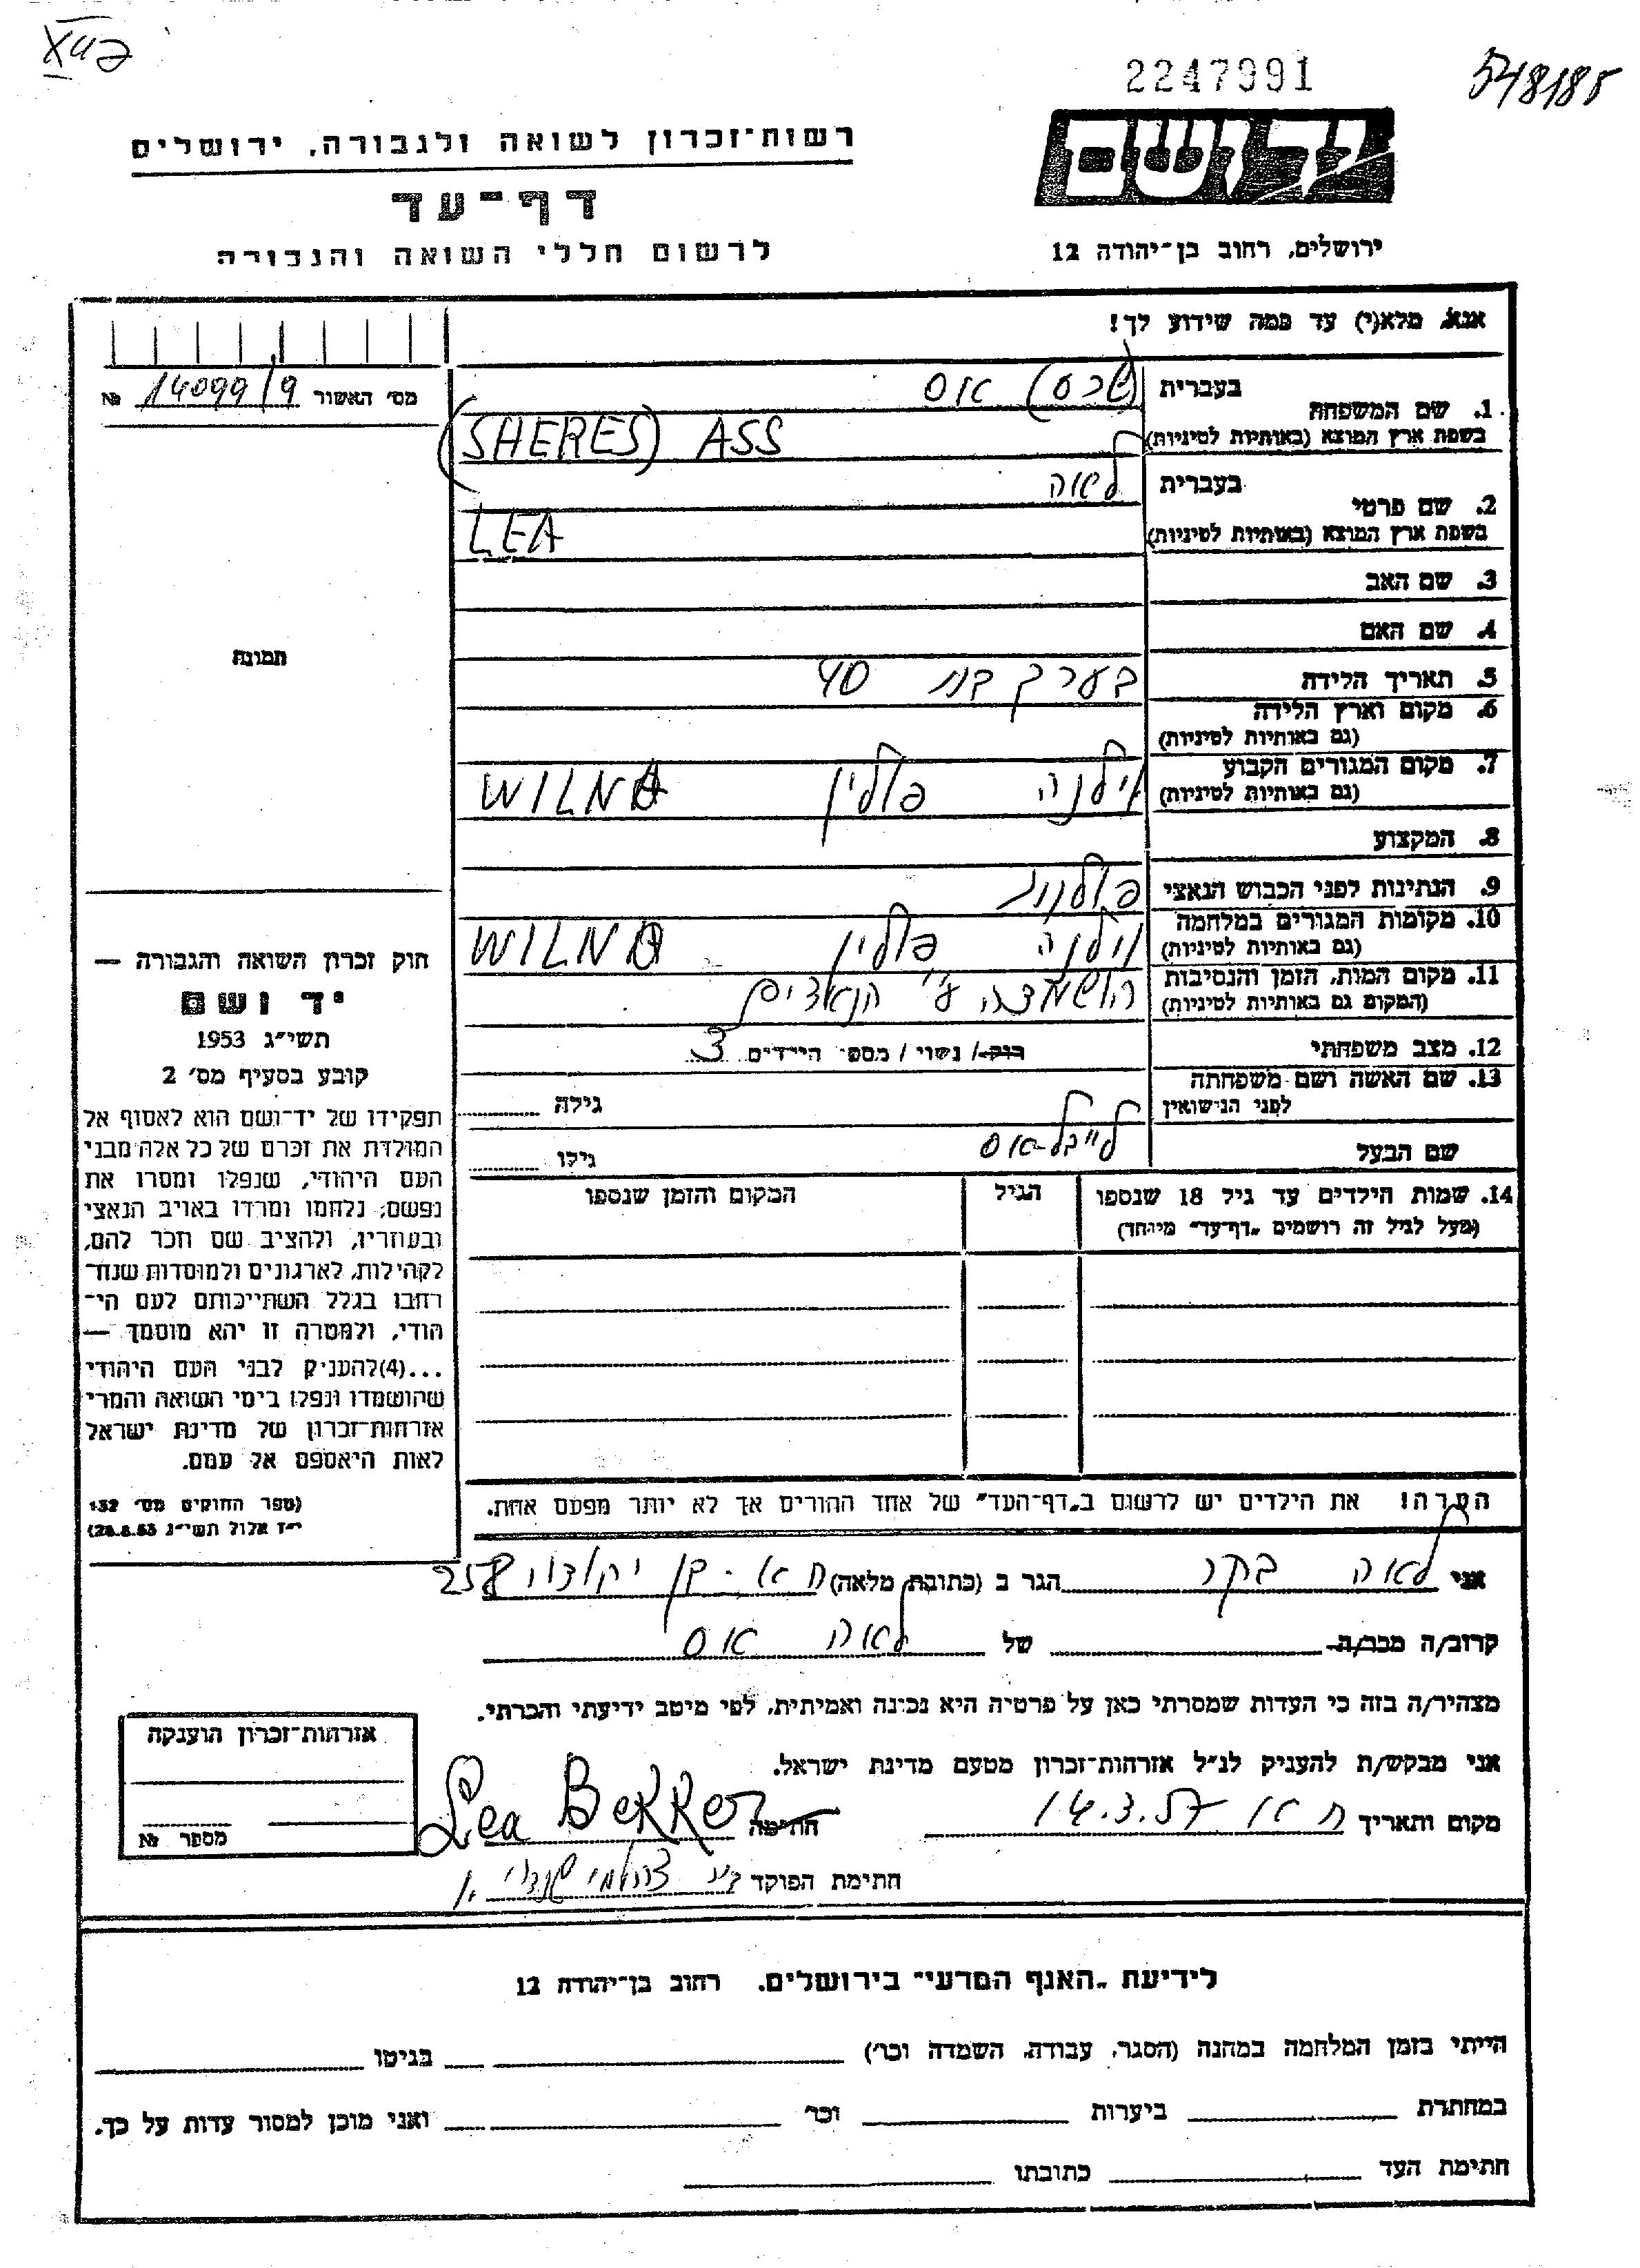 2247991
548185
יד ושם
רשות־זכרון לשואה ולגבורה, ירושלים
דף־עד
לרשום חללי השואה והגבורה
ירושלים, רחוב בן־יהודה 12
אנא, מלא(י) עד כמה שידוע לך!
מס׳ האשור 14099/9 №
1. שם המשפחה בעברית (שרס) אס
בשפת ארץ המוצא (באותיות לטיניות) (SHERES) ASS
2. שם פרטי בעברית לאה
בשפת ארץ המוצא (באותיות לטיניות) LEA
3. שם האב
4. שם האם
5. תאריך הלידה בערך בת 40
6. מקום וארץ הלידה
(גם באותיות לטיניות)
7. מקום המגורים הקבוע
(גם באותיות לטיניות) וילנה פולין WILNA
8. המקצוע
9. הנתינות לפני הכבוש הנאצי פולנית
10. מקומות המגורים במלחמה
(גם באותיות לטיניות) וילנה פולין WILNA
11. מקום המות, הזמן והנסיבות
(המקום גם באותיות לטיניות) הושמדה ע״י הנאצים
12. מצב משפחתי רוק / נשוי / מספר הילדים 3
13. שם האשה ושם משפחתה
לפני הנישואין גילה
שם הבעל לייבל אס גילו
14. שמות הילדים עד גיל 18 שנספו הגיל המקום והזמן שנספו
(מעל לגיל זה רושמים „דף־עד״ מיוחד)
תמונה
חוק זכרון השואה והגבורה —
יד ושם
תשי״ג 1953
קובע בסעיף מס׳ 2
תפקידו של יד־ושם הוא לאסוף אל
המולדת את זכרם של כל אלה מבני
העם היהודי, שנפלו ומסרו את
נפשם, נלחמו ומרדו באויב הנאצי
ובעוזריו, ולהציב שם וזכר להם,
לקהילות, לארגונים ולמוסדות שנח־
רבו בגלל השתייכותם לעם הי־
הודי, ולמטרה זו יהא מוסמך —
...(4) להעניק לבני העם היהודי
שהושמדו ונפלו בימי השואה והמרי
אזרחות־זכרון של מדינת ישראל
לאות היאספם אל עמם.
(ספר החוקים מס׳ 132
י״ז אלול תשי״ג 28.8.53)
הערה! את הילדים יש לרשום ב„דף־העד״ של אחד ההורים אך לא יותר מפעם אחת.
אני לאה בקר הגר ב (כתובת מלאה) ת א - בן יהודה 258
קרוב/ה מכר/ה של לאה אס
מצהיר/ה בזה כי העדות שמסרתי כאן על פרטיה היא נכונה ואמיתית, לפי מיטב ידיעתי והכרתי.
אני מבקש/ת להעניק לנ״ל אזרחות־זכרון מטעם מדינת ישראל.
מקום ותאריך ת א 14.3.57 חתימה Lea Bekker
חתימת הפוקד
אזרחות־זכרון הוענקה
מספר №
לידיעת „האגף המדעי״ בירושלים, רחוב בן־יהודה 12
הייתי בזמן המלחמה במחנה (הסגר, עבודה, השמדה וכו׳) בגיטו
במחתרת ביערות וכו׳ ואני מוכן למסור עדות על כך.
חתימת העד כתובתו